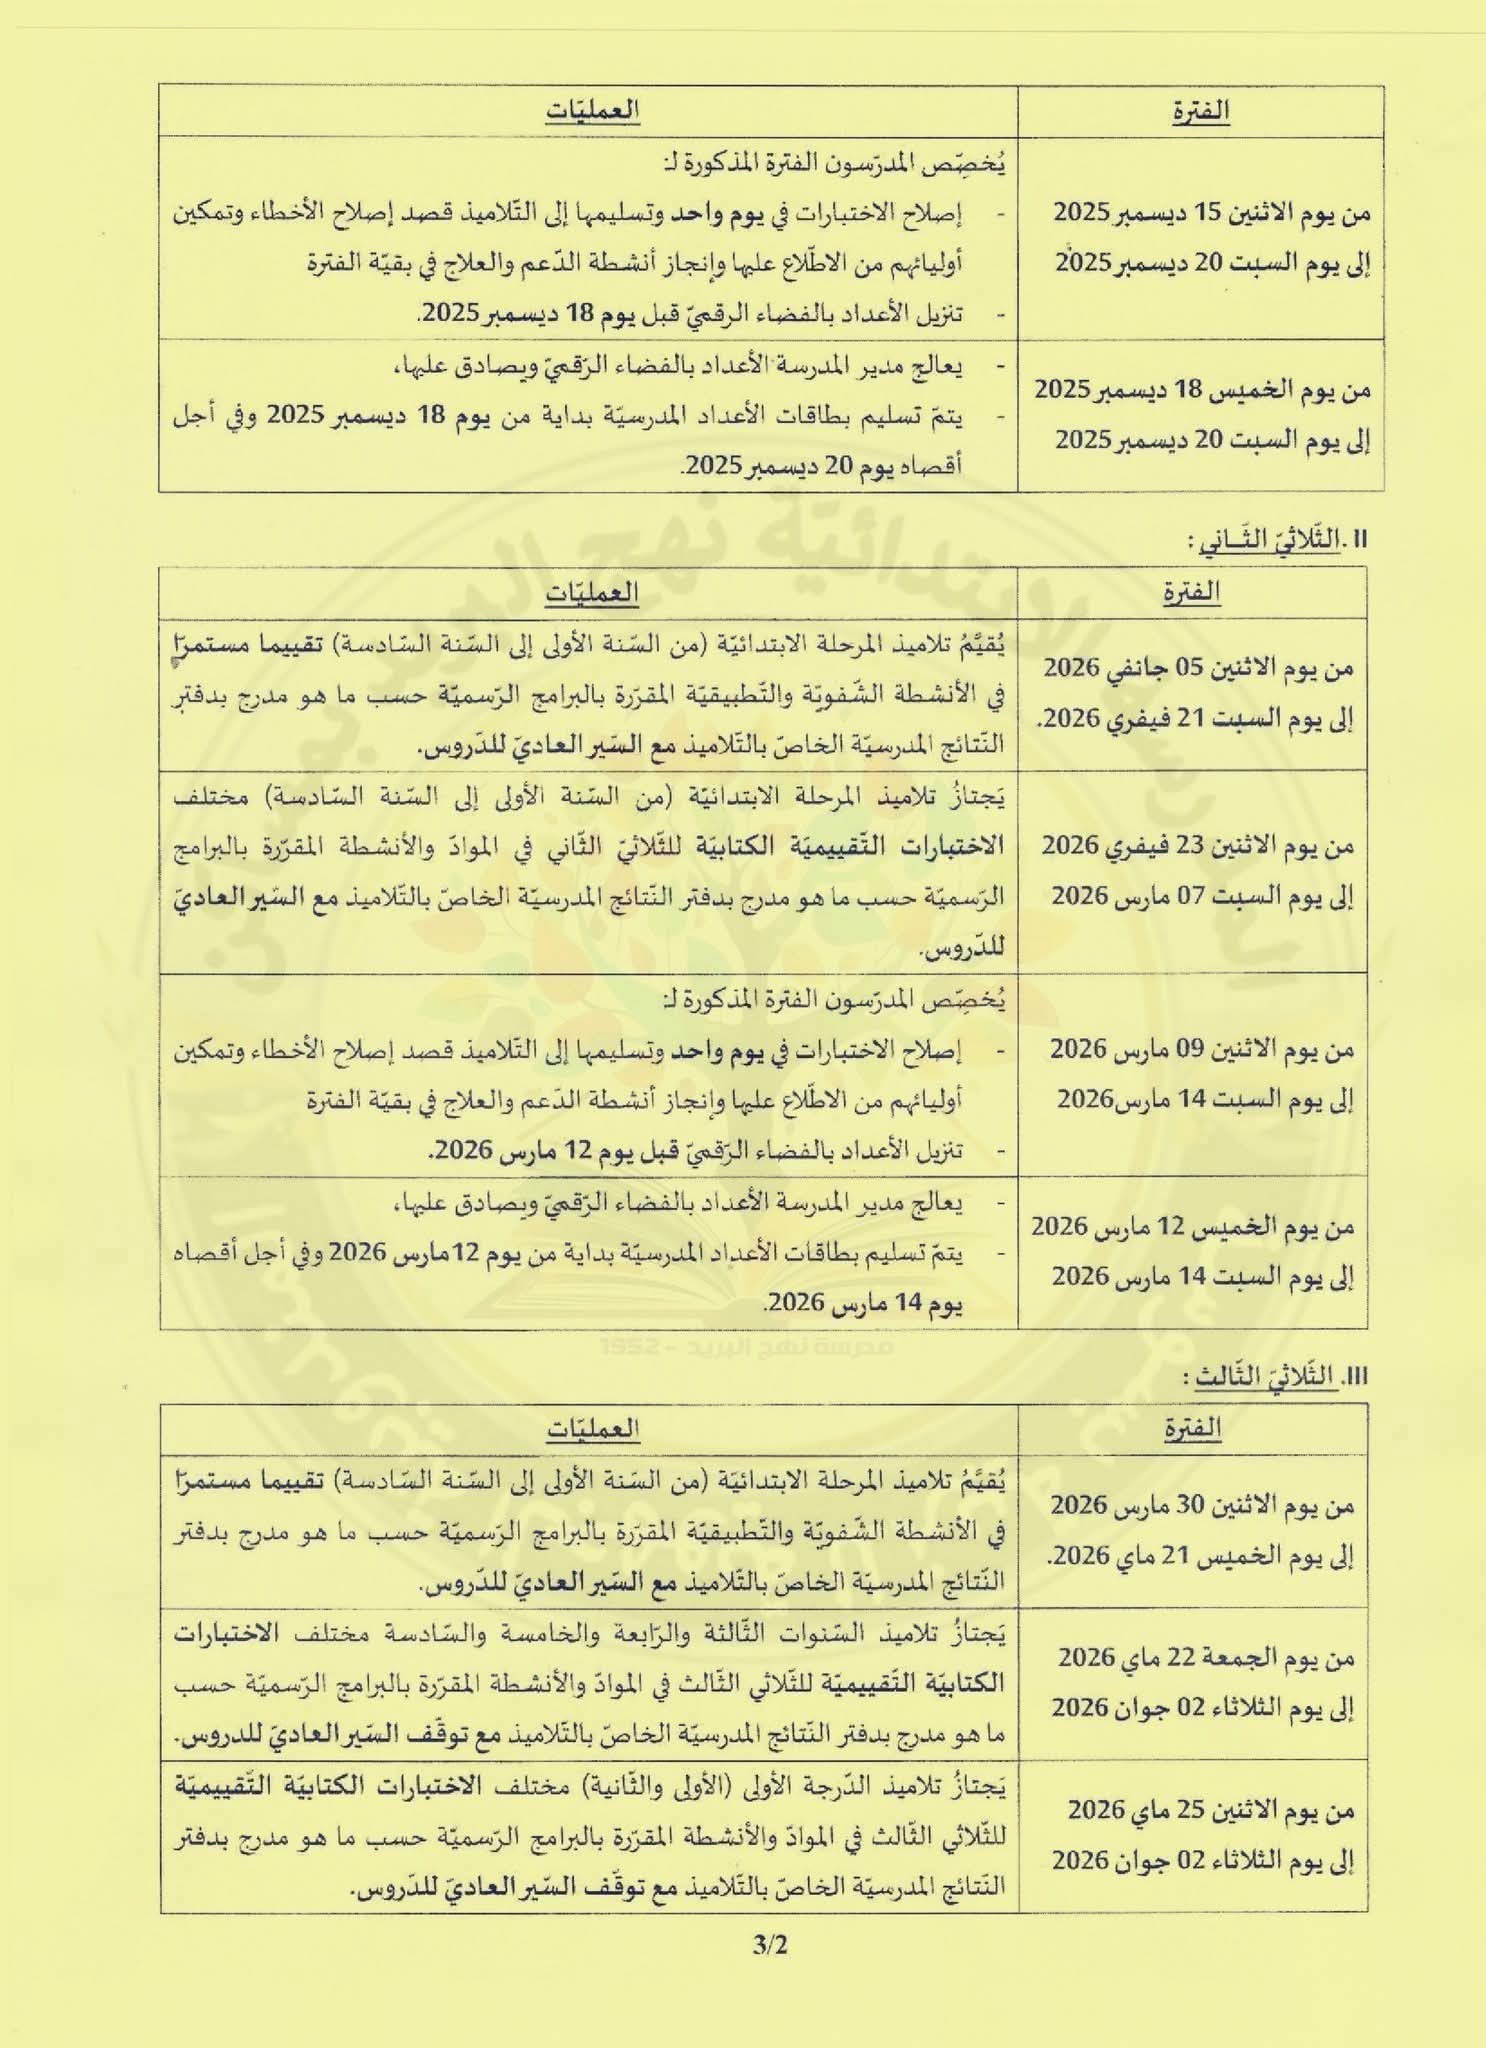 الفترة
العمليّات
من يوم الاثنين 15 ديسمبر 2025
إلى يوم السبت 20 ديسمبر 2025
يُخصِّص المدرّسون الفترة المذكورة لـ:
- إصلاح الاختبارات في يوم واحد وتسليمها إلى التّلاميذ قصد إصلاح الأخطاء وتمكين
أوليائهم من الاطّلاع عليها وإنجاز أنشطة الدّعم والعلاج في بقيّة الفترة
- تنزيل الأعداد بالفضاء الرقميّ قبل يوم 18 ديسمبر 2025.
من يوم الخميس 18 ديسمبر 2025
إلى يوم السبت 20 ديسمبر 2025
- يعالج مدير المدرسة الأعداد بالفضاء الرّقميّ ويصادق عليها،
- يتمّ تسليم بطاقات الأعداد المدرسيّة بداية من يوم 18 ديسمبر 2025 وفي أجل
أقصاه يوم 20 ديسمبر 2025.
II. الثّلاثيّ الثّـاني :
الفترة
العمليّات
من يوم الاثنين 05 جانفي 2026
إلى يوم السبت 21 فيفري 2026.
يُقيَّمُ تلاميذ المرحلة الابتدائيّة (من السّنة الأولى إلى السّنة السّادسة) تقييما مستمرّا
في الأنشطة الشّفويّة والتّطبيقيّة المقرّرة بالبرامج الرّسميّة حسب ما هو مدرج بدفتر
النّتائج المدرسيّة الخاصّ بالتّلاميذ مع السّير العاديّ للدّروس.
من يوم الاثنين 23 فيفري 2026
إلى يوم السبت 07 مارس 2026
يَجتازُ تلاميذ المرحلة الابتدائيّة (من السّنة الأولى إلى السّنة السّادسة) مختلف
الاختبارات التّقييميّة الكتابيّة للثّلاثيّ الثّاني في الموادّ والأنشطة المقرّرة بالبرامج
الرّسميّة حسب ما هو مدرج بدفتر النّتائج المدرسيّة الخاصّ بالتّلاميذ مع السّير العاديّ
للدّروس.
من يوم الاثنين 09 مارس 2026
إلى يوم السبت 14 مارس2026
يُخصِّص المدرّسون الفترة المذكورة لـ:
- إصلاح الاختبارات في يوم واحد وتسليمها إلى التّلاميذ قصد إصلاح الأخطاء وتمكين
أوليائهم من الاطّلاع عليها وإنجاز أنشطة الدّعم والعلاج في بقيّة الفترة
- تنزيل الأعداد بالفضاء الرّقميّ قبل يوم 12 مارس 2026.
من يوم الخميس 12 مارس 2026
إلى يوم السبت 14 مارس 2026
- يعالج مدير المدرسة الأعداد بالفضاء الرّقميّ ويصادق عليها،
- يتمّ تسليم بطاقات الأعداد المدرسيّة بداية من يوم 12مارس 2026 وفي أجل أقصاه
يوم 14 مارس 2026.
مدرسة نهج البريد - 1952
III. الثّلاثيّ الثّالث :
الفترة
العمليّات
من يوم الاثنين 30 مارس 2026
إلى يوم الخميس 21 ماي 2026.
يُقيَّمُ تلاميذ المرحلة الابتدائيّة (من السّنة الأولى إلى السّنة السّادسة) تقييما مستمرّا
في الأنشطة الشّفويّة والتّطبيقيّة المقرّرة بالبرامج الرّسميّة حسب ما هو مدرج بدفتر
النّتائج المدرسيّة الخاصّ بالتّلاميذ مع السّير العاديّ للدّروس.
من يوم الجمعة 22 ماي 2026
إلى يوم الثلاثاء 02 جوان 2026
يَجتازُ تلاميذ السّنوات الثّالثة والرّابعة والخامسة والسّادسة مختلف الاختبارات
الكتابيّة التّقييميّة للثّلاثي الثّالث في الموادّ والأنشطة المقرّرة بالبرامج الرّسميّة حسب
ما هو مدرج بدفتر النّتائج المدرسيّة الخاصّ بالتّلاميذ مع توقّف السّير العاديّ للدروس.
من يوم الاثنين 25 ماي 2026
إلى يوم الثلاثاء 02 جوان 2026
يَجتازُ تلاميذ الدّرجة الأولى (الأولى والثّانية) مختلف الاختبارات الكتابيّة التّقييميّة
للثّلاثي الثّالث في الموادّ والأنشطة المقرّرة بالبرامج الرّسميّة حسب ما هو مدرج بدفتر
النّتائج المدرسيّة الخاصّ بالتّلاميذ مع توقّف السّير العاديّ للدّروس.
3/2